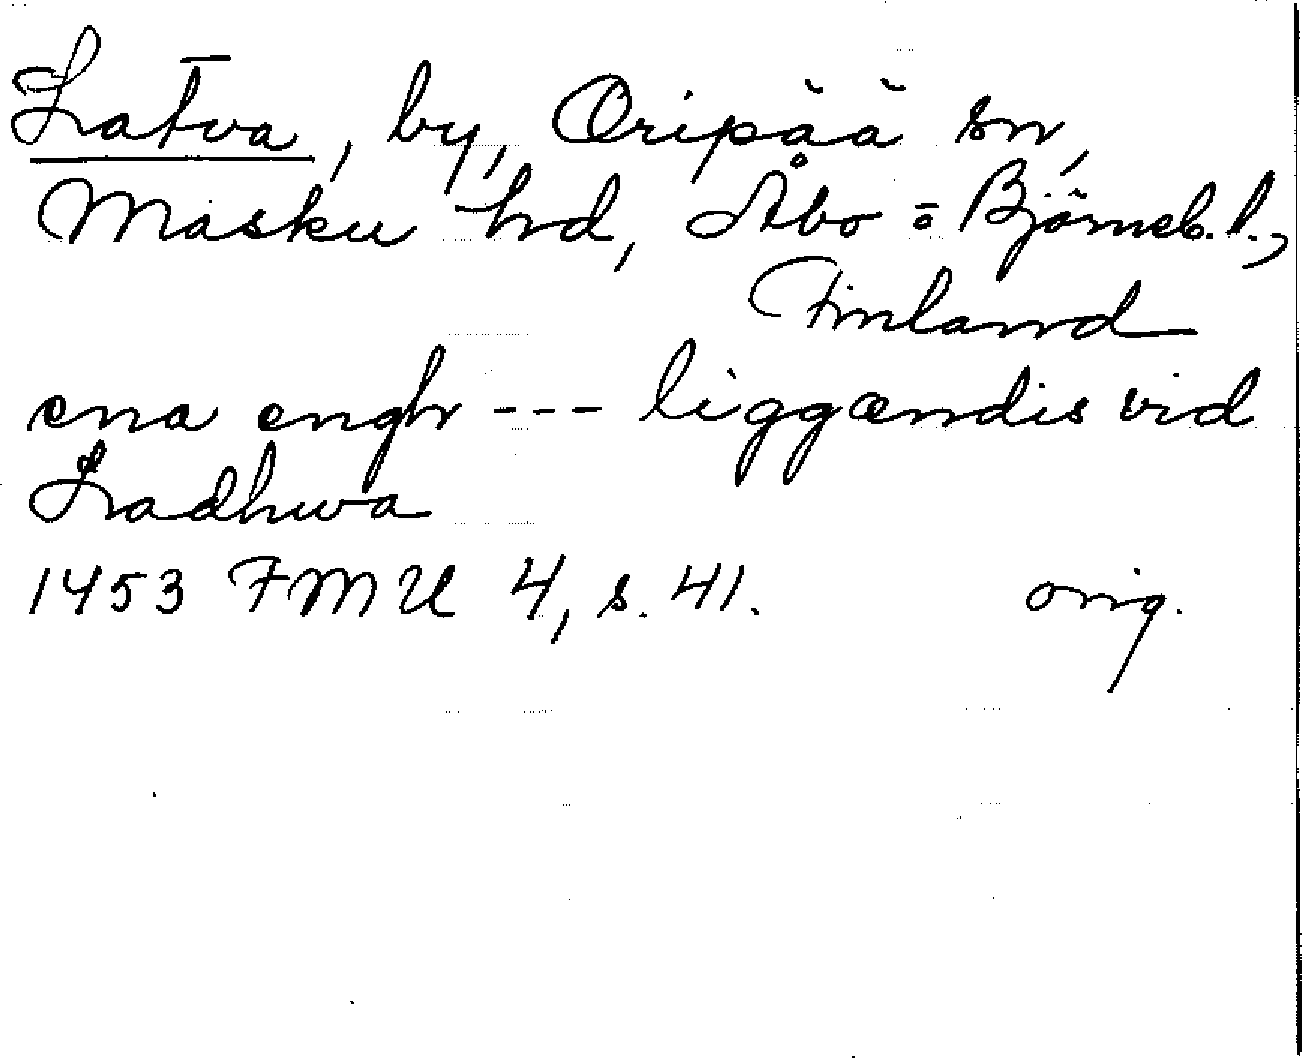 Latva, by, Oripää sn,
Masku hd, Åbo o Björneb. l.,
Finland
ena engh --- liggændis vid
Ladhwa
1453 FMU 4, s. 41. orig.